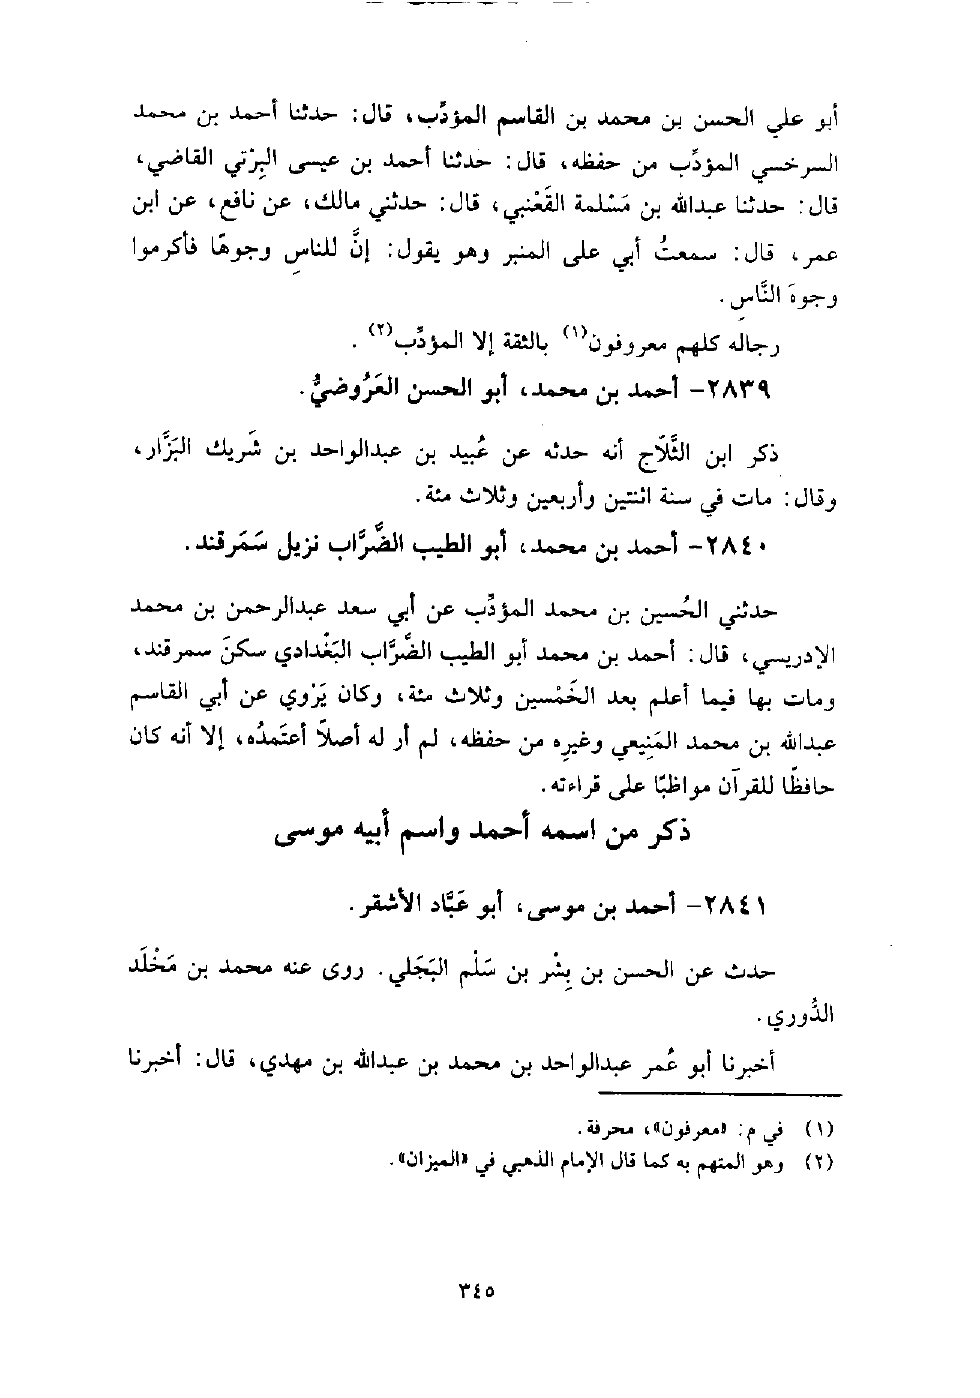 أبو علي الحسن بن محمد بن القاسم المؤدِّب، قال: حدثنا أحمد بن محمد
السرخسي المؤدِّب من حفظه، قال: حدثنا أحمد بن عيسى البِرْتي القاضي،
قال: حدثنا عبدالله بن مَسْلمة القَعْنبي، قال: حدثني مالك، عن نافع، عن ابن
عمر، قال: سمعتُ أبي على المنبر وهو يقول: إنَّ للناسِ وجوهًا فأكرموا
وجوهَ النَّاسِ.
رجاله كلهم معروفون(١) بالثقة إلا المؤدِّب(٢).
٢٨٣٩- أحمد بن محمد، أبو الحسن العَرُوضيُّ.
ذكر ابن الثَّلَّاج أنه حدثه عن عُبيد بن عبدالواحد بن شَريك البَزَّار،
وقال: مات في سنة اثنتين وأربعين وثلاث مئة.
٢٨٤٠- أحمد بن محمد، أبو الطيب الضَّرَّاب نزيل سَمَرقند.
حدثني الحُسين بن محمد المؤدِّب عن أبي سعد عبدالرحمن بن محمد
الإدريسي، قال: أحمد بن محمد أبو الطيب الضَّرَّاب البَغْدادي سكنَ سمرقند،
ومات بها فيما أعلم بعد الخَمْسين وثلاث مئة، وكان يَرْوي عن أبي القاسم
عبدالله بن محمد المَنِيعي وغيره من حفظه، لم أر له أصلًا أعتَمدُه، إلا أنه كان
حافظًا للقرآن مواظبًا على قراءته.
ذكر من اسمه أحمد واسم أبيه موسى
٢٨٤١- أحمد بن موسى، أبو عَبَّاد الأشقر.
حدث عن الحسن بن بِشْر بن سَلْم البَجَلي. روى عنه محمد بن مَخْلَد
الدُّوري.
أخبرنا أبو عُمر عبدالواحد بن محمد بن عبدالله بن مهدي، قال: أخبرنا
(١) في م: «معرفون»، محرفة.
(٢) وهو المتهم به كما قال الإمام الذهبي في «الميزان».
٣٤٥